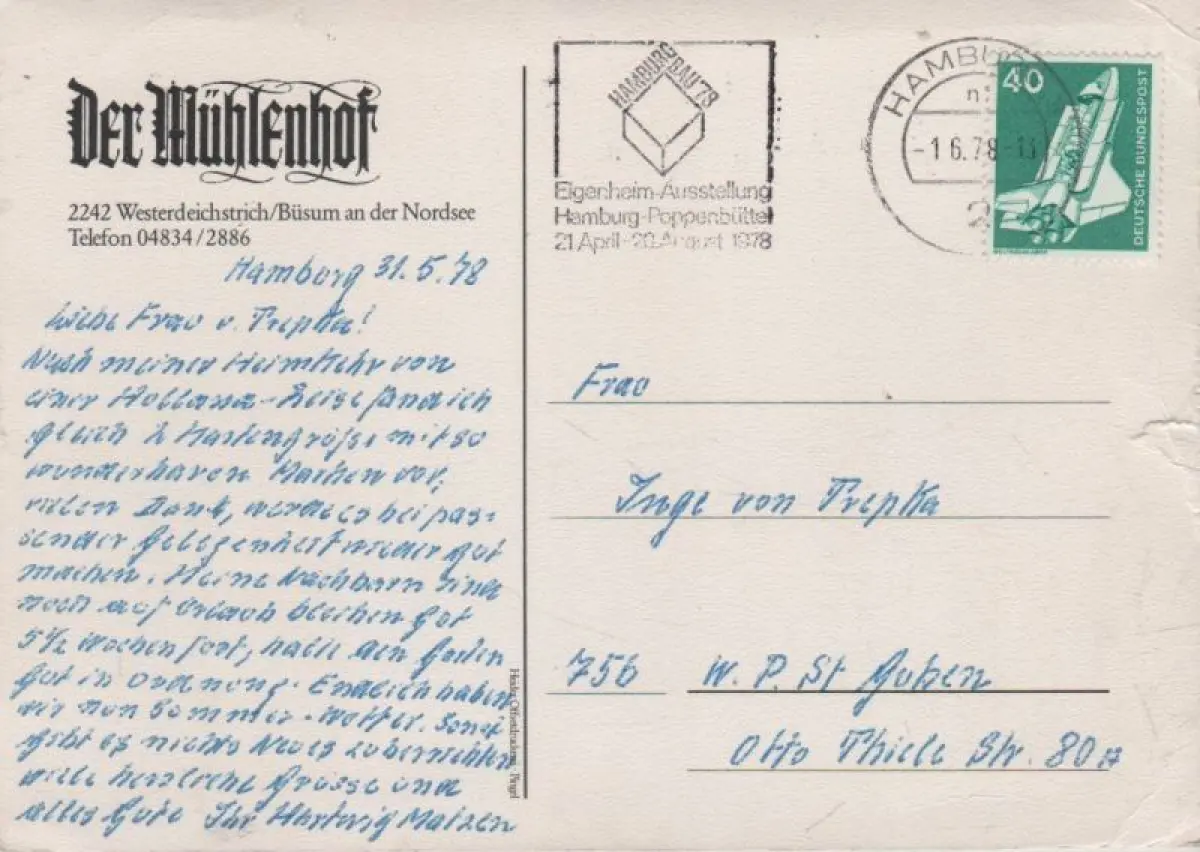 Der Mühlenhof
2242 Westerdeichstrich/Büsum an der Nordsee
Telefon 04834/2886
Hamburg 31.5.78
Liebe Frau v. Trepka!
Nach meiner Heimkehr von
einer Holland-Reise fand ich
gleich 2 Kartengrüße mit so
wunderbaren Marken vor,
vielen Dank, werde es bei pas-
sender Gelegenheit wieder gut
machen. Meine Nachbarn sind
noch auf Urlaub bleiben gut
5 1/2 Wochen fort, halte den Garten
gut in Ordnung. Endlich haben
wir nun Sommer-Wetter. Sonst
gibt es nichts Neues zu berichten
viele herzliche Grüsse und
alles Gute Ihr Hartwig Matzen
HAMBURG BAU '78
Eigenheim-Ausstellung
Hamburg-Poppenbüttel
21 April-20 August 1978
HAMBURG
-1.6.78-
2
40
DEUTSCHE BUNDESPOST
Frau
Inge von Trepka
756 W. P. St Guben
Otto Thiele Str. 80a